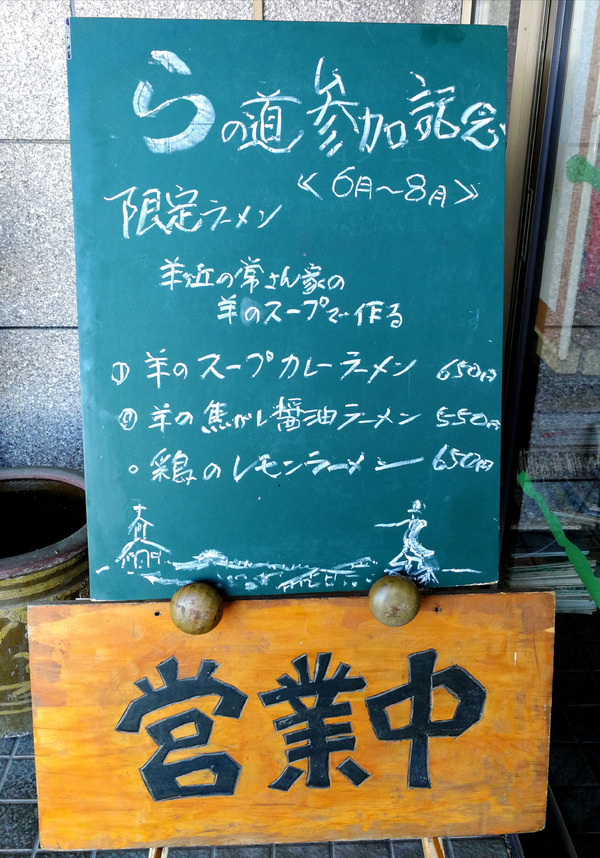 らの道参加記念
≪6月～8月≫
限定ラーメン
羊近の常さん家の
羊のスープで作る
① 羊のスープカレーラーメン 650円
② 羊の焦がし醤油ラーメン 550円
○ 鶏のレモンラーメン 650円
営業中